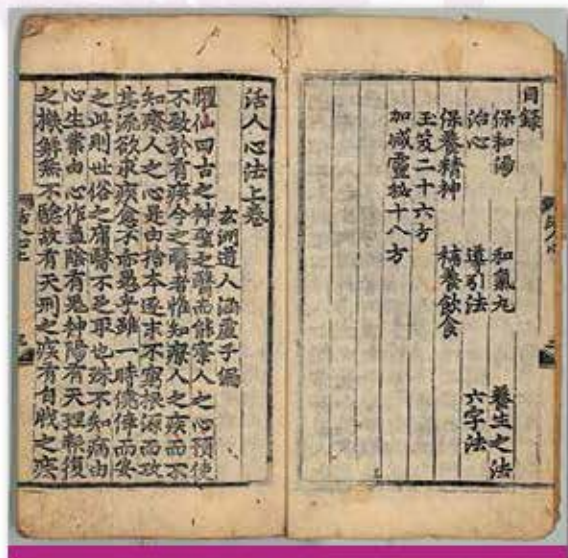 目録
保和湯 和氣丸 養生之法
治心 導引法 六字法
保養精神 補養飲食
玉笈二十六方
加減靈秘十八方
活人心法上卷
玄洲道人涵虛子編
臞仙曰古之神聖之醫而能療人之心預使
不致於有疾今之醫者惟知療人之疾而不
知療人之心是由捨本逐末不窮根源而攻
其流欲求疾愈不亦愚乎雖一時僥倖而安
之此則世俗之庸醫不足取也殊不知病由
心生業由心作蓋陰有鬼神陽有天理報復
之機鮮無不驗故有天刑之疾有自戕之疾